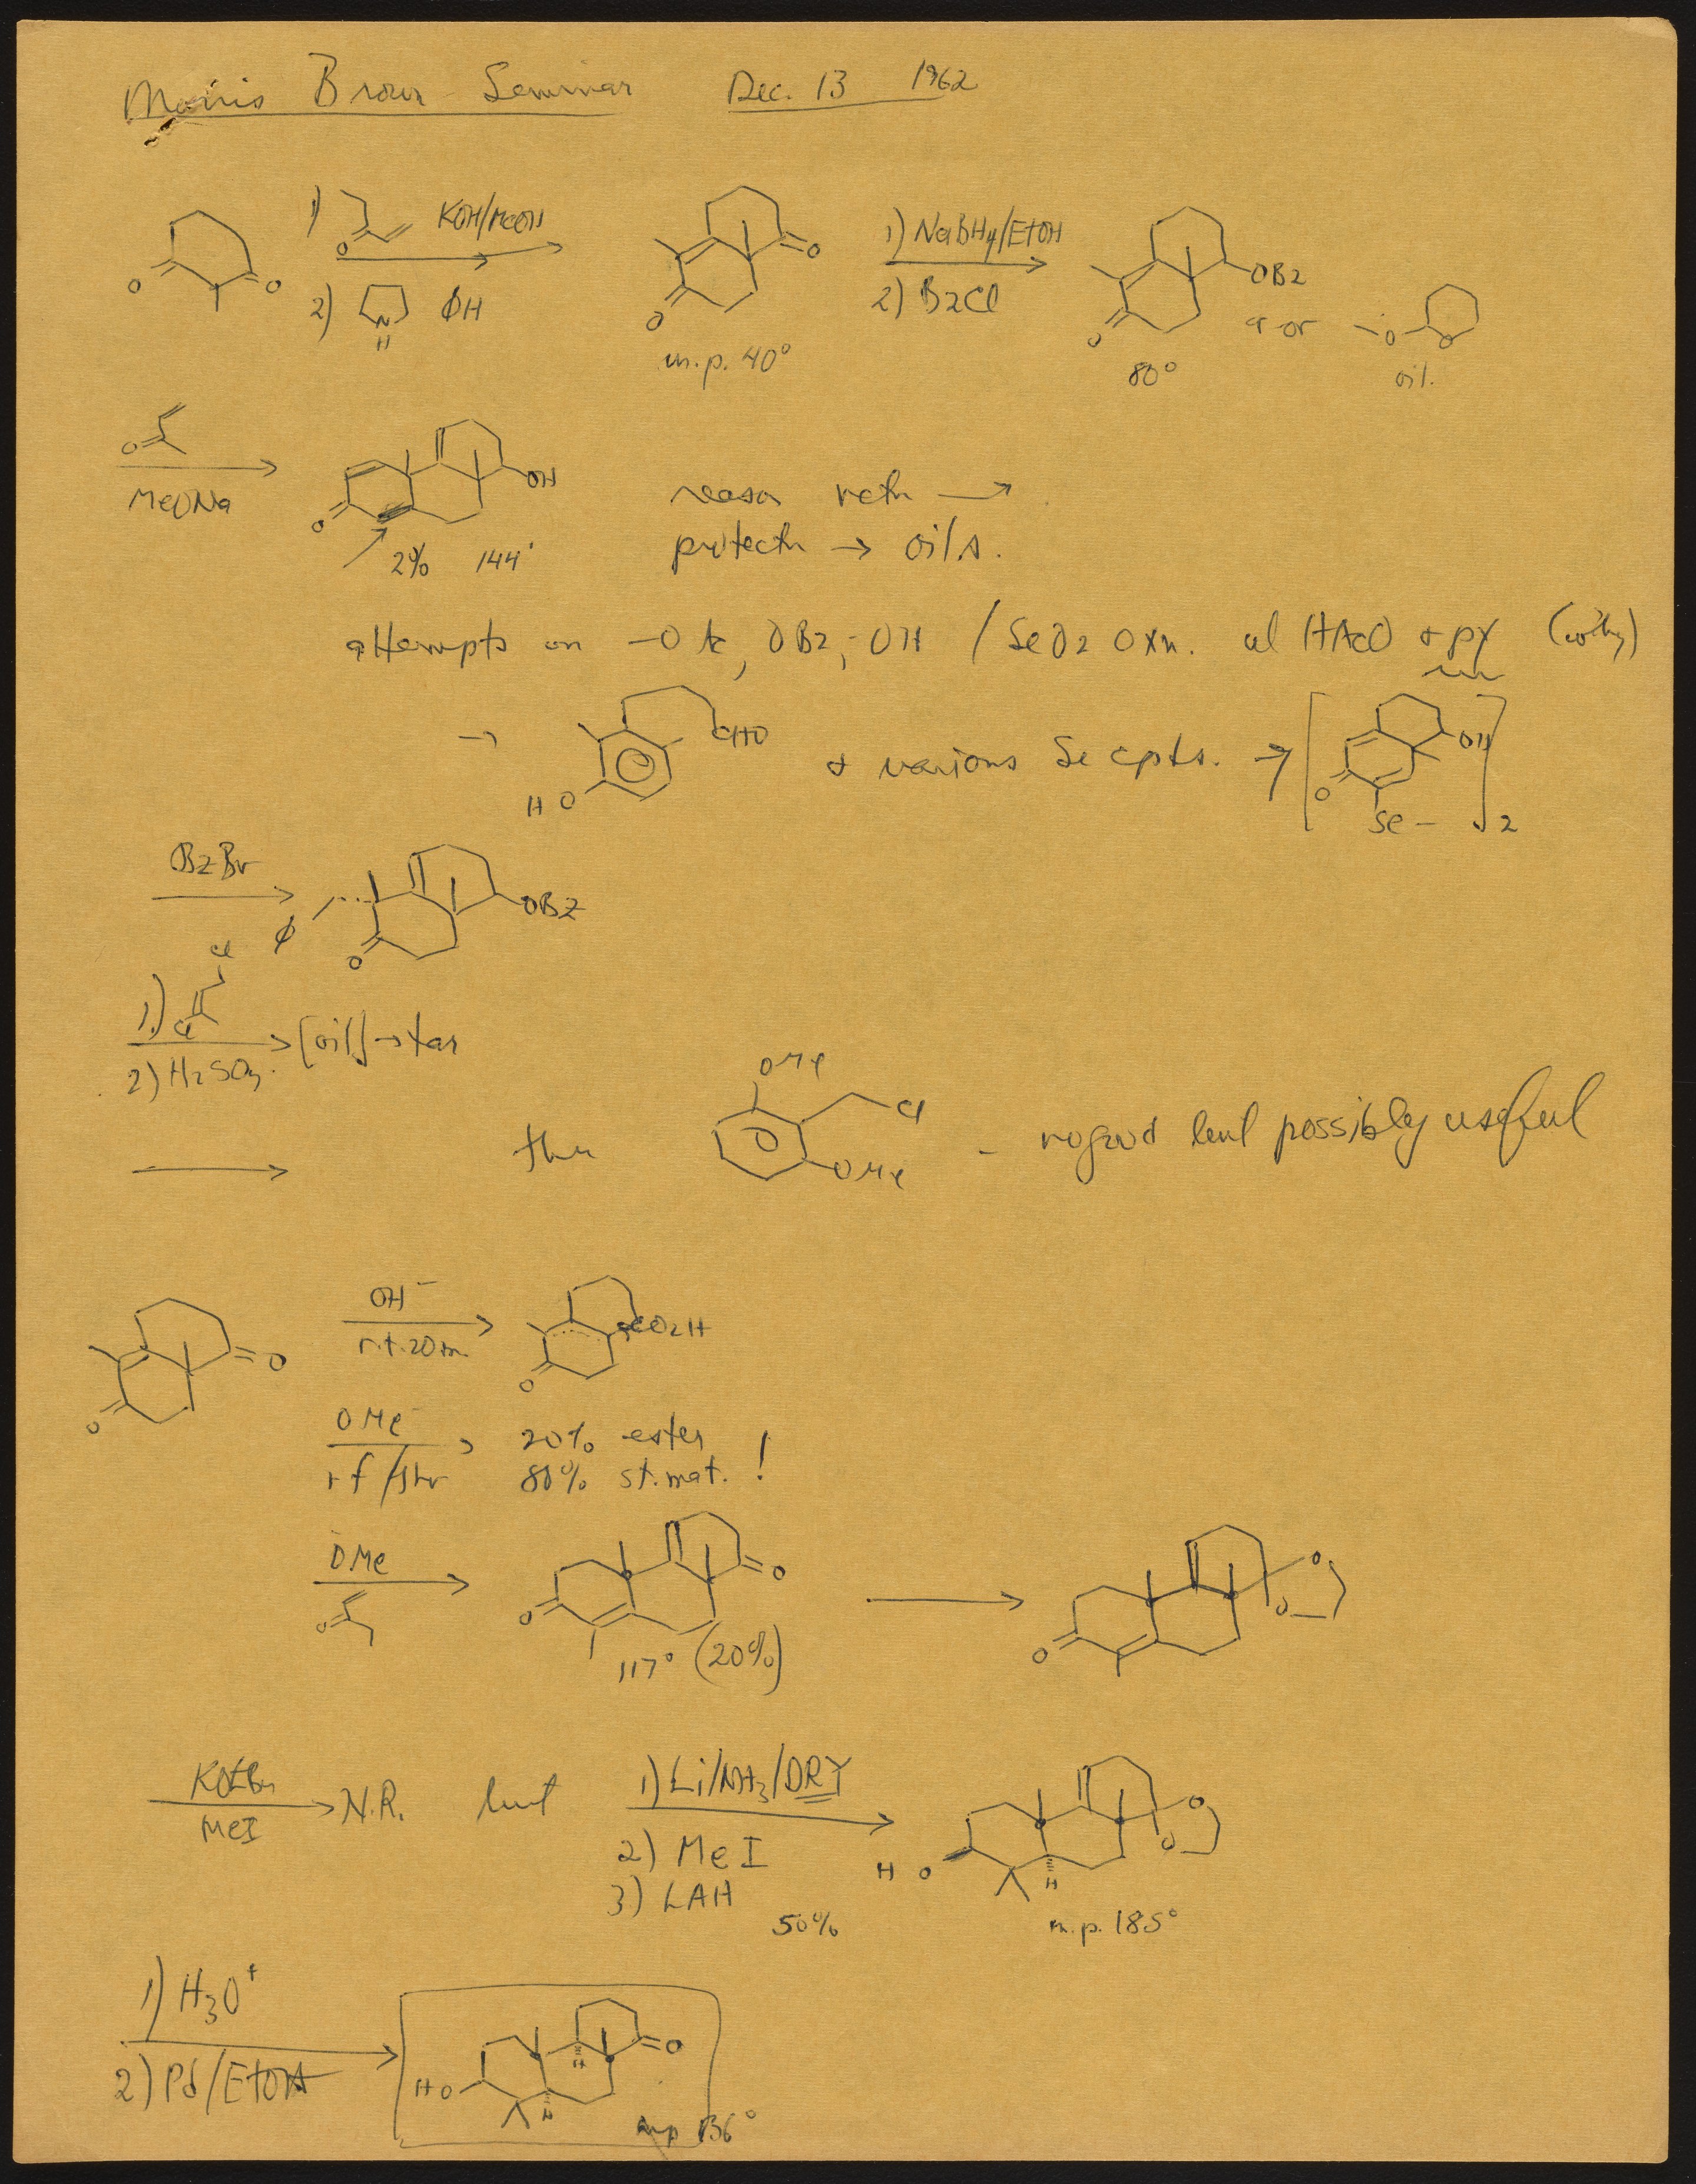 Morris Brown Seminar Dec. 13 1962
1) O KOH/MeOH
2) N H ØH
O O
O O
m.p. 40°
1) NaBH4/EtOH
2) BzCl
OBz
O
80°
or -O O
oil.
O
MeONa
O OH
2% 144°
reason retn →
protectn → oils.
attempts on -OAc, OBz, -OH / SeO2 oxn. al HAcO + py
→ HO CHO + various Se cpts. → [ O OH Se - ]2
BzBr
Ø O OBz
1) Cl Cl
2) H2SO4. → [oil] → tar
→ OMe Cl OMe - no good but possibly useful
O O
OH-
r.t. 20m.
O CO2H
OMe-
rf/1hr
20% ester
80% st. mat. !
OMe
O
O O
117° (20%)
→ O O O
KOtBu
MeI
→ N.R. but
1) Li/NH3/DRY
2) MeI
3) LAH
50%
HO H O O
m.p. 185°
1) H3O+
2) Pd/EtOH
HO H H O
mp 136°